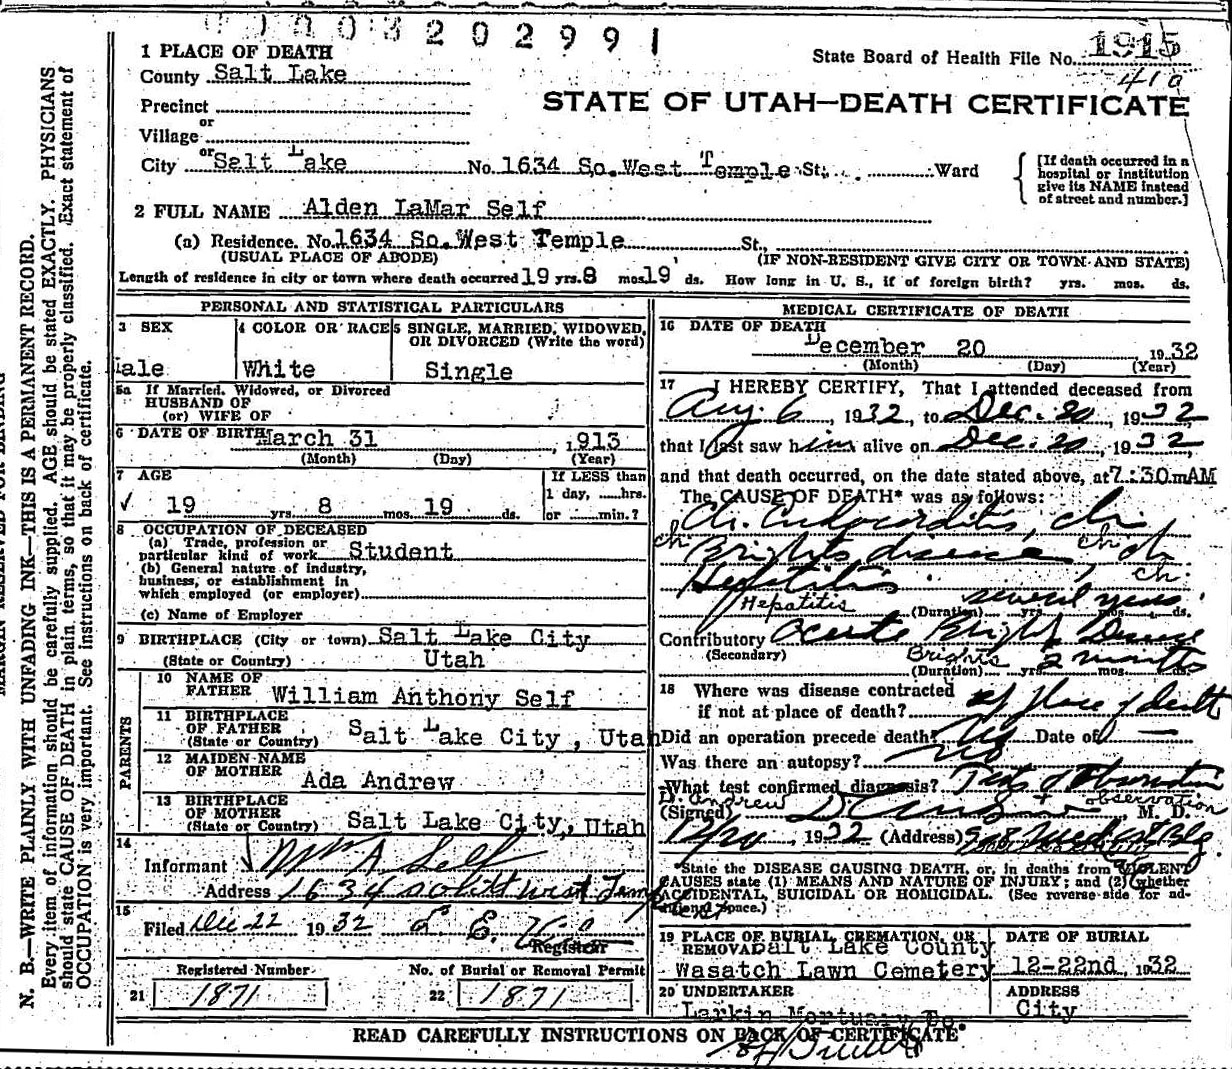 003202991
1 PLACE OF DEATH
State Board of Health File No. 1915
410
County Salt Lake
STATE OF UTAH—DEATH CERTIFICATE
Precinct
or
Village
or
City Salt Lake No. 1634 So. West Temple St., Ward
[If death occurred in a hospital or institution give its NAME instead of street and number.]
2 FULL NAME Alden LaMar Self
(a) Residence. No. 1634 So. West Temple St.,
(USUAL PLACE OF ABODE) (IF NON-RESIDENT GIVE CITY OR TOWN AND STATE)
Length of residence in city or town where death occurred 19 yrs. 8 mos. 19 ds. How long in U. S., if of foreign birth? yrs. mos. ds.
PERSONAL AND STATISTICAL PARTICULARS
3 SEX
4 COLOR OR RACE
5 SINGLE, MARRIED, WIDOWED, OR DIVORCED (Write the word)
ale
White
Single
5a If Married, Widowed, or Divorced
HUSBAND OF
(or) WIFE OF
6 DATE OF BIRTH March 31, 1913
(Month) (Day) (Year)
7 AGE
If LESS than
1 day, hrs.
or min.?
19 yrs. 8 mos. 19 ds.
8 OCCUPATION OF DECEASED
(a) Trade, profession or
particular kind of work Student
(b) General nature of industry,
business, or establishment in
which employed (or employer)
(c) Name of Employer
9 BIRTHPLACE (City or town) Salt Lake City
(State or Country) Utah
PARENTS
10 NAME OF
FATHER William Anthony Self
11 BIRTHPLACE
OF FATHER
(State or Country) Salt Lake City, Utah
12 MAIDEN NAME
OF MOTHER Ada Andrew
13 BIRTHPLACE
OF MOTHER
(State or Country) Salt Lake City, Utah
14
Informant Wm A Self
Address 1634 South West Temple
15
Filed Dec 22 1932
Registrar
Registered Number
21 1871
No. of Burial or Removal Permit
22 1871
MEDICAL CERTIFICATE OF DEATH
16 DATE OF DEATH
December 20, 1932
(Month) (Day) (Year)
17 I HEREBY CERTIFY, That I attended deceased from
Aug. 6, 1932, to Dec. 20, 1932
that I last saw him alive on Dec. 20, 1932
and that death occurred, on the date stated above, at 7:30 mAM
The CAUSE OF DEATH* was as follows:
Ch. Endocarditis, ch
ch Brights disease, ch ch
Hepatitis ch.
Hepatitis several years
(Duration) yrs. mos. ds.
Contributory Acute Bright Disease
(Secondary) Brights 2 months
(Duration) yrs. mos. ds.
18 Where was disease contracted
if not at place of death? at place of death
Did an operation precede death? No Date of —
Was there an autopsy? No
What test confirmed diagnosis? Tests & Observation
D. Andrew + observation
(Signed) M. D.
12/20 1932 (Address)
*State the DISEASE CAUSING DEATH, or, in deaths from VIOLENT
CAUSES state (1) MEANS AND NATURE OF INJURY; and (2) whether
ACCIDENTAL, SUICIDAL OR HOMICIDAL. (See reverse side for additional space.)
19 PLACE OF BURIAL, CREMATION, OR
REMOVAL Salt Lake County
Wasatch Lawn Cemetery
DATE OF BURIAL
12-22nd, 1932
20 UNDERTAKER
Larkin Mortuary Co
ADDRESS
City
READ CAREFULLY INSTRUCTIONS ON BACK OF CERTIFICATE
MARGIN RESERVED FOR BINDING
N. B.—WRITE PLAINLY WITH UNFADING INK—THIS IS A PERMANENT RECORD.
Every item of information should be carefully supplied. AGE should be stated EXACTLY. PHYSICIANS
should state CAUSE OF DEATH in plain terms, so that it may be properly classified. Exact statement of
OCCUPATION is very important. See instructions on back of certificate.